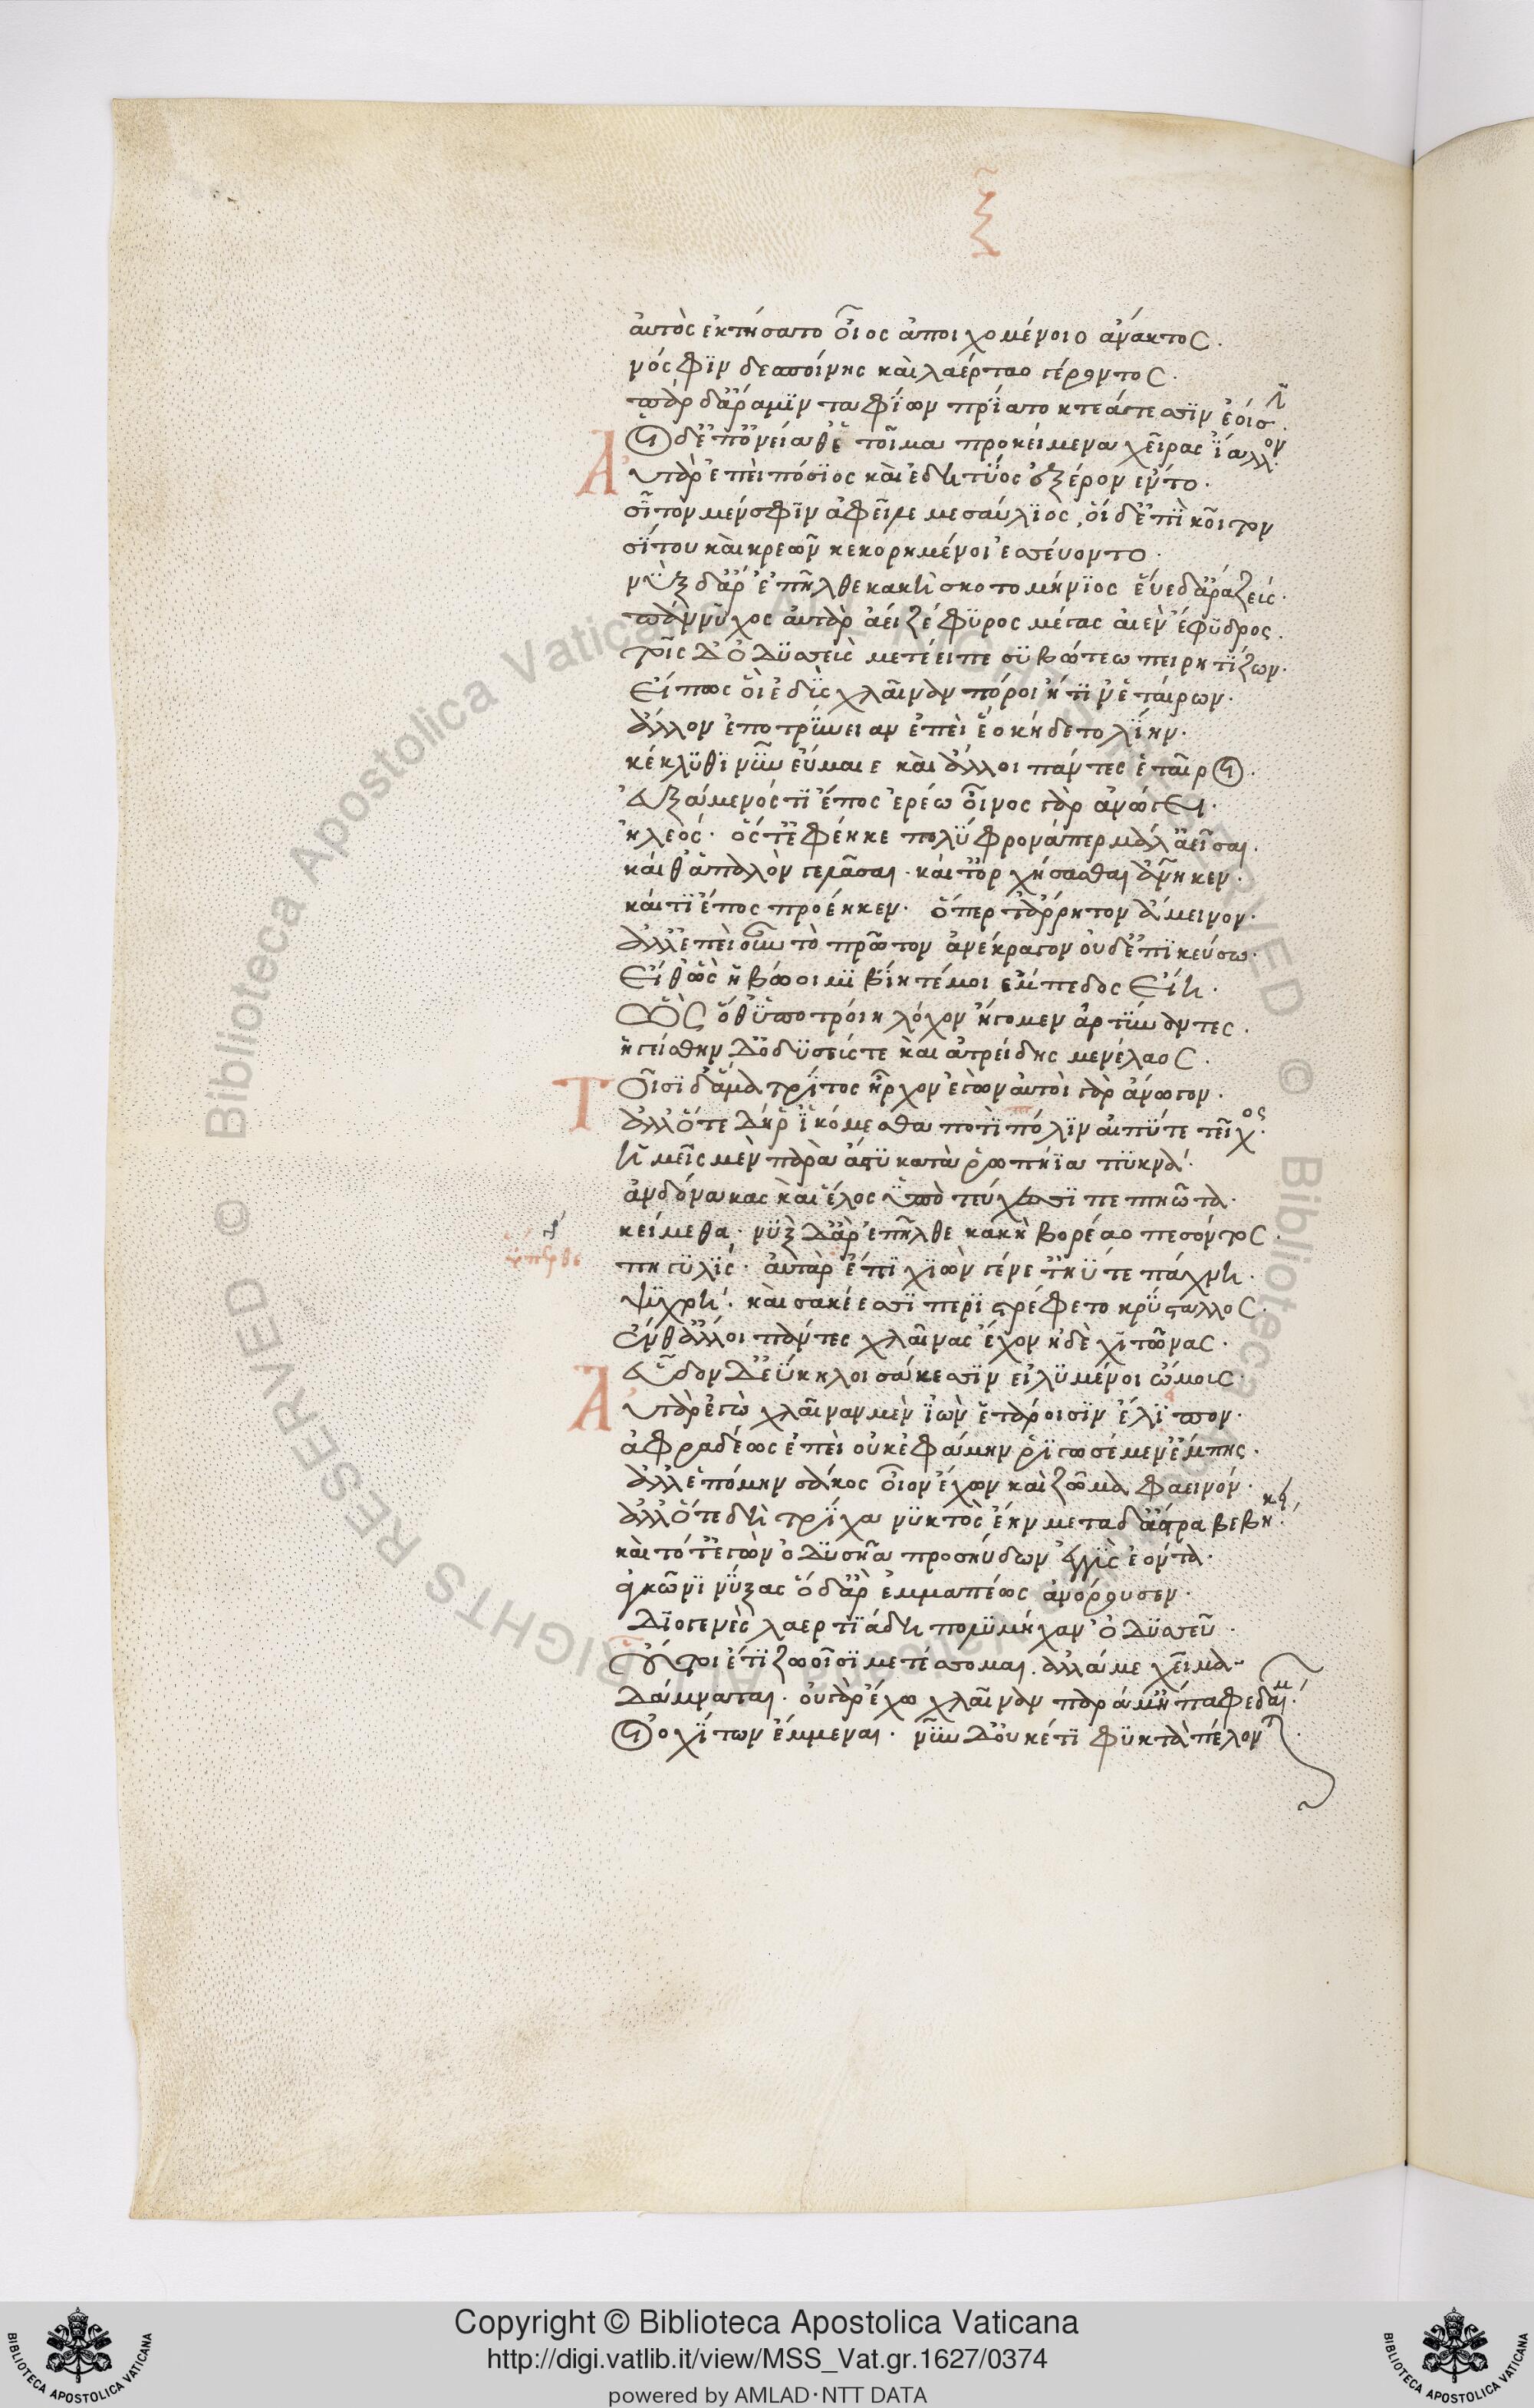 ξ̃
αὐτὸς ἐκτήσατο οἶος ἀποιχομένοιο ἄνακτος.
νόσφϊν δεσποίνης καὶ λαέρταο γέροντος.
πὰρ δ' ἄρά μϊν ταφΐων πρΐατο κτεάτεσσϊν ἑοῖσϊν.
Οἱ δ' ἐπ' ὀνείαθ' ἑτοῖμα προκείμενα χεῖρας ἴαλλον.
Αὐτὰρ ἐπεὶ πόσϊος καὶ ἐδητΰος ἐξ έρον ἕντο.
σῖτον μέν σφϊν ἀφεῖλε μεσαύλϊος, οἱ δ' ἐπὶ κοῖτον
σΐτου καὶ κρεῶν κεκορημένοι ἐσσεύοντο.
νὺξ δ' ἄρ' ἐπῆλθε κακὴ σκοτομήνϊος ὗε δ' ἄρα ζεύς.
πάννυχος αὐτὰρ ἄει ζέφϋρος μέγας αἰὲν ἔφϋδρος.
τοῖς δ' ὀδϋσεὺς μετέειπε σϋβώτεω πειρητΐζων.
Εἴ πως οἱ ἐκδὺς χλαῖναν πόροι ἤ τϊν' ἑταίρων.
ἄλλον ἐποτρύνειεν ἐπεὶ ἕο κήδετο λΐην.
κέκλϋθϊ νῦν εὔμαιε καὶ ἄλλοι πάντες ἑταῖροι.
εὐξάμενός τϊ ἔπος ἐρέω οἶνος γὰρ ἀνώγει.
ἠλεός. ὅς τ' ἐφέηκε πολΰφρονά περ μάλ' ἀεῖσαι.
καί θ' ἁπαλὸν γελάσαι. καί τ' ὀρχήσασθαι ἀνῆκεν.
καί τϊ ἔπος προέηκεν. ὅπερ τ' ἄρρητον ἄμεινον.
ἀλλ' ἐπεὶ οὖν τὸ πρῶτον ἀνέκραγον οὐκ ἐπϊκεύσω.
Εἴθ' ὣς ἡβώοιμϊ βΐη τέ μοι ἔμπεδος εἴη.
ὡς ὅθ' ὑπὸ τροίη λόχον ἤγομεν ἀρτύναντες.
ἡγείσθην δ' ὀδϋσεύς τε καὶ ἀτρείδης μενέλαος.
Τοῖσϊ δ' ἅμα τρΐτος ἦρχον ἐγὼν αὐτοὶ γὰρ ἄνωγον.
ἀλλ' ὅτε δή ῥ' ἱκόμεσθα ποτὶ πόλϊν αἰπΰ τε τεῖχος.
ἡμεῖς μὲν παρὰ ἄστϋ κατὰ ῥωπήϊα πϋκνά.
ἂν δόνακας καὶ ἕλος ὑπὸ τεύχεσσϊ πεπτηῶτα.
κείμεθα. νὺξ δ' ἄρ' ἐπῆλθε κακὴ βορέαο πεσόντος.
ὕπερθε
πηγϋλΐς. αὐτὰρ ἐπὶ χϊὼν γένετ' ἠΰτε πάχνη.
ψϋχρή. καὶ σακέεσσϊ περϊτρέφετο κρΰσταλλος.
ἔνθ' ἄλλοι πάντες χλαίνας ἔχον ἠδὲ χϊτῶνας.
εὗδον δ' εὔκηλοι σάκεσϊν εἰλϋμένοι ὤμους.
Αὐτὰρ ἐγὼ χλαῖναν μὲν ἰὼν ἑτάροισϊν ἔλϊπον.
ἀφραδέως ἐπεὶ οὐκ ἐφάμην ῥϊγωσέμεν ἔμπης.
ἀλλ' ἑπόμην σάκος οἶον ἔχων καὶ ζῶμα φαεινόν.
ἀλλ' ὅτε δὴ τρΐχα νϋκτὸς ἔην μετὰ δ' ἄστρα βεβήκει.
καὶ τότ' ἐγὼν ὀδϋσῆα προσηύδων ἐγγὺς ἐόντα.
ἀγκῶνϊ νΰξας ὁ δ' ἄρ' ἐμμαπέως ὑπάκουσεν.
Δϊογενὲς λαερτϊάδη πολϋμήχαν' ὀδϋσσεῦ.
Οὔτοι ἔτϊ ζωοῖσϊ μετέσσομαι. ἀλλά με χεῖμα
Δάμναται. οὐ γὰρ ἔχω χλαῖναν παρά μ' ἤπαφε δαίμων.
Οἰοχΐτων' ἔμμεναι. νῦν δ' οὐκέτϊ φϋκτὰ πέλονται.
Copyright © Biblioteca Apostolica Vaticana
http://digi.vatlib.it/view/MSS_Vat.gr.1627/0374
powered by AMLAD·NTT DATA
BIBLIOTECA APOSTOLICA VATICANA
BIBLIOTECA APOSTOLICA VATICANA